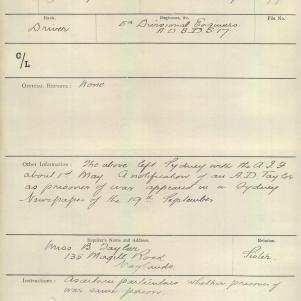 Rank.
Regiment, &c.
File No.
Driver
5th Divisional Engineers
A D B D E 17
C/L
OFFICIAL REPORTS: None
Other Information: The above left Sydney with the A.I.F
about 1st May. A notification of an A.D. Taylor
as prisoner of war appeared in a Sydney
Newspaper of the 19th September
Inquirer's Name and Address.
Relation.
Miss B. Taylor
135 Magill Road
Maylands.
Sister.
Instructions: Ascertain particulars whether prisoner of
war same person.